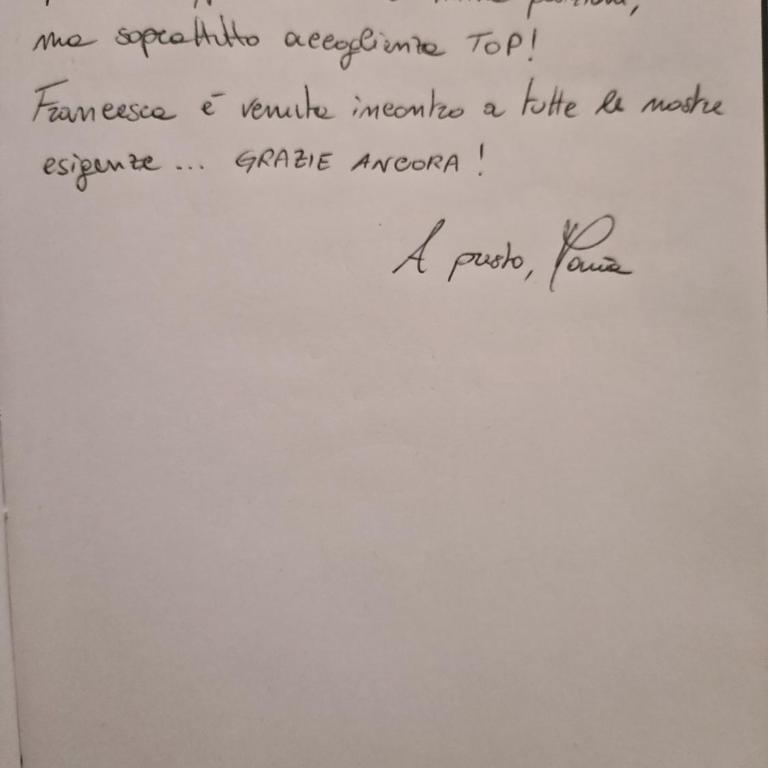 posizione,
ma soprattutto accoglienza TOP!
Francesca è venuta incontro a tutte le nostre
esigenze... GRAZIE ANCORA!
A presto,